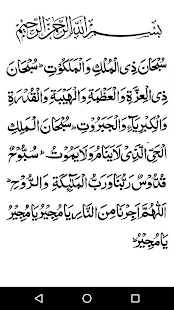 بِسْمِ اللهِ الرَّحْمٰنِ الرَّحِيْمِ
سُبْحَانَ ذِی الْمُلْكِ وَالْمَلَكُوْتِ ؕ سُبْحَانَ
ذِی الْعِزَّةِ وَالْعَظَمَةِ وَالْهَيْبَةِ وَالْقُدْرَةِ
وَالْكِبْرِيَآءِ وَالْجَبَرُوْتِ ؕ سُبْحَانَ الْمَلِكِ
الْحَیِّ الَّذِیْ لَا يَنَامُ وَلَا يَمُوْتُ ؕ سُبُّوْحٌ
قُدُّوْسٌ رَبُّنَا وَرَبُّ الْمَلٰٓئِكَةِ وَالرُّوْحِ ؕ
اَللّٰهُمَّ اَجِرْنَا مِنَ النَّارِ يَا مُجِيْرُ يَا مُجِيْرُ
يَا مُجِيْرُ ؕ